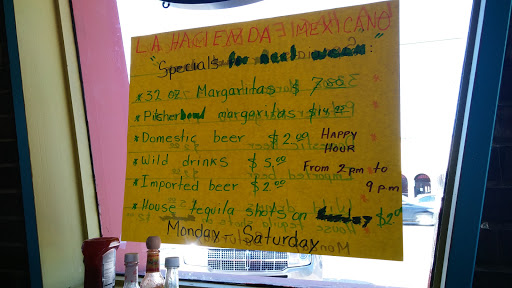 LA HACIENDA MEXICANO
"Specials for next week:"
* 32 oz. Margaritas $ 7.
* Pitcher margaritas $14.
* Domestic beer $2.00
HAPPY HOUR
* Wild drinks $5.00
From 2 pm to 9 pm
* Imported beer $2.
* House tequila shots on $2.
Monday - Saturday